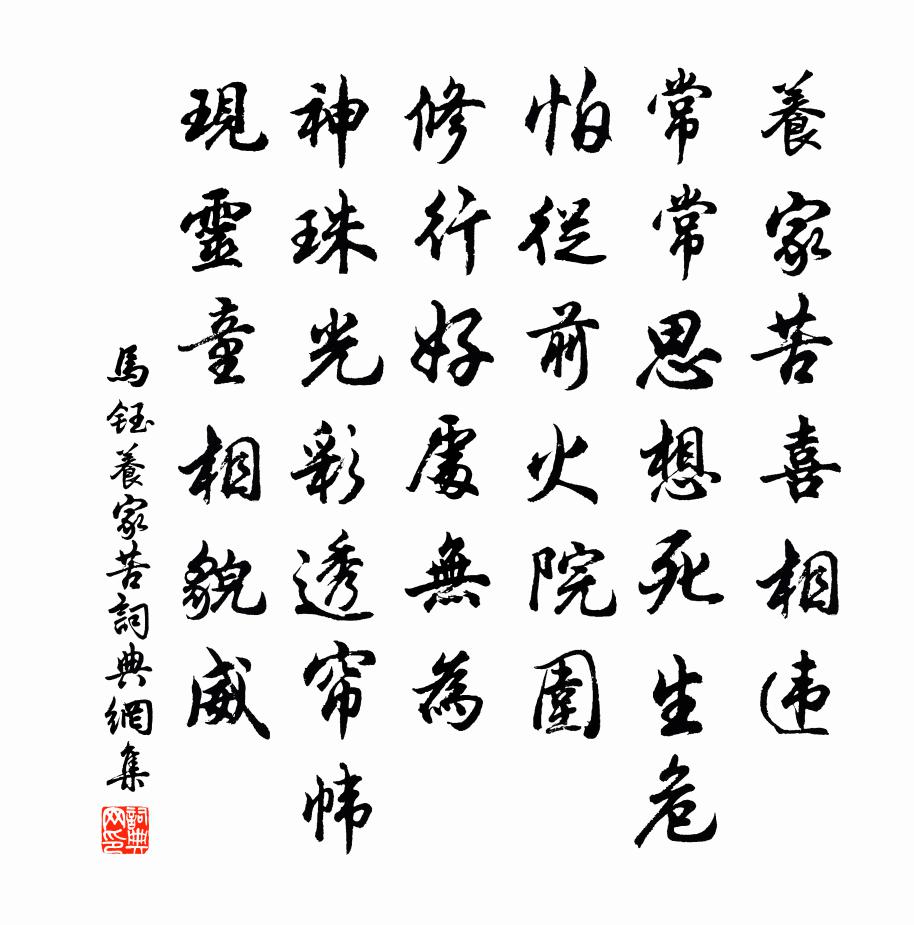 養家苦喜相违
常常思想死生危
怕從前火院圍
修行好處無為
神珠光彩透帘帏
現靈童相貌威
馬鈺養家苦詞典網集
詞典网印